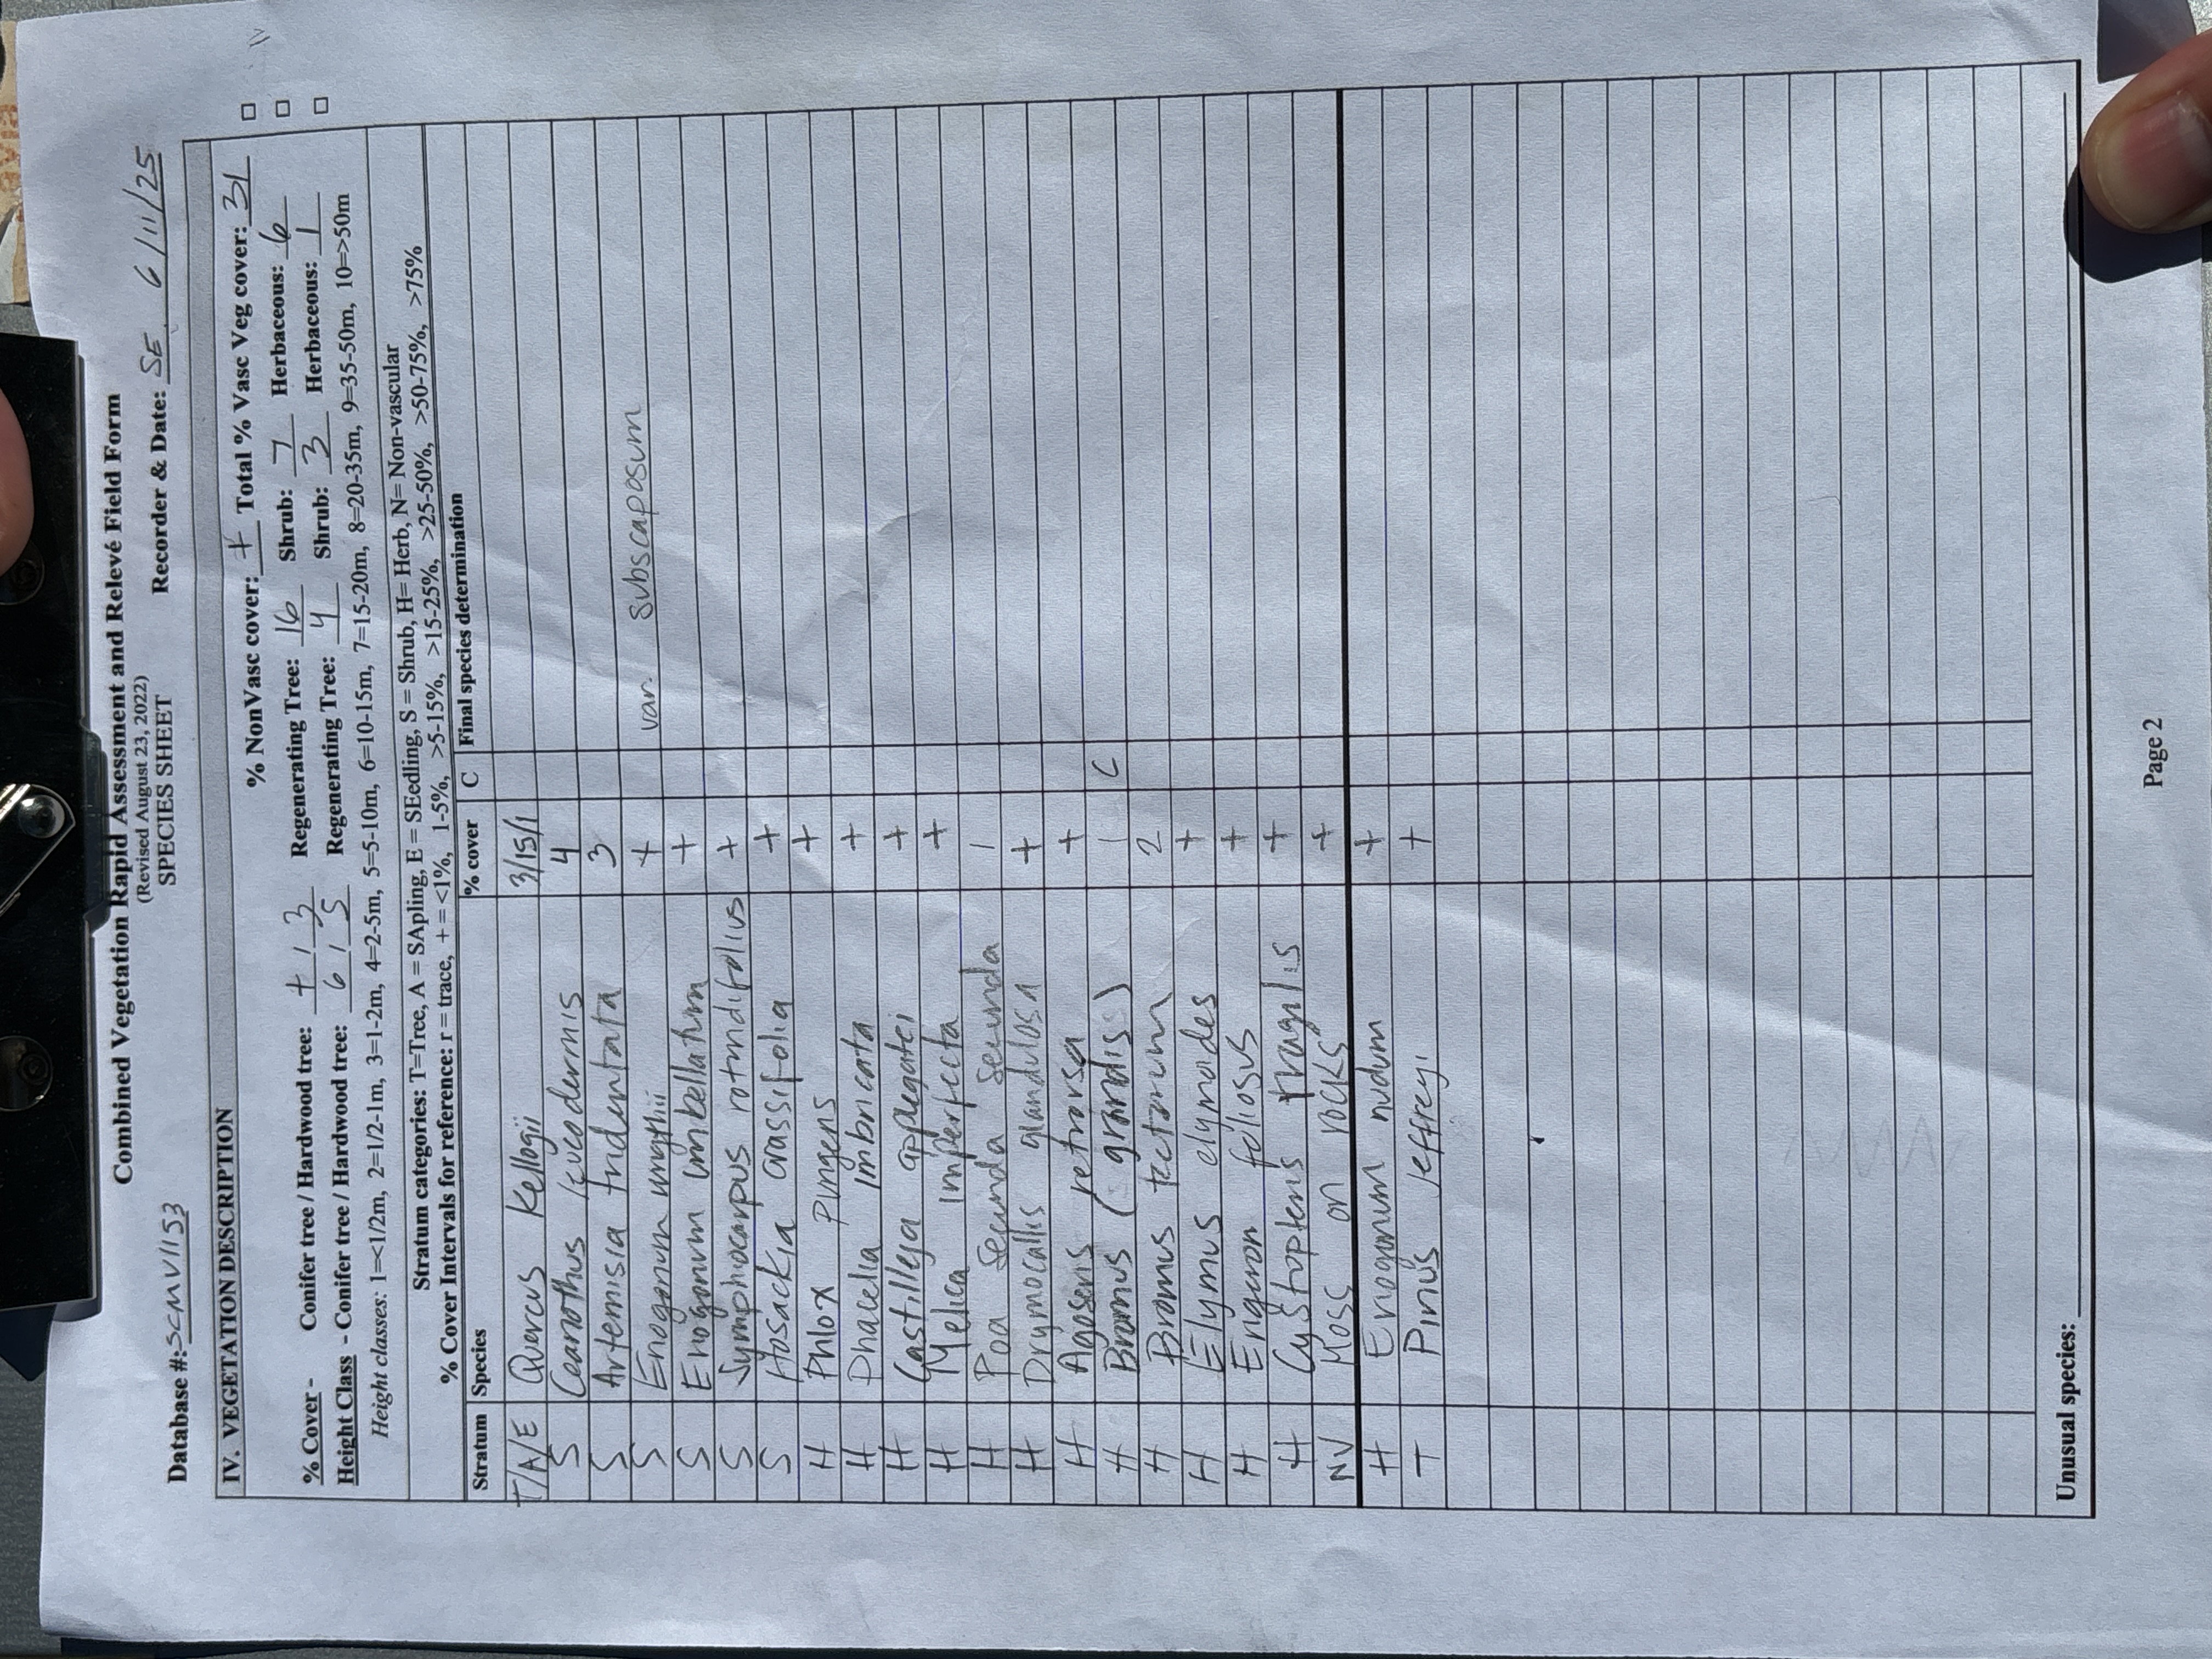 Combined Vegetation Rapid Assessment and Relevé Field Form
(Revised August 23, 2022)
SPECIES SHEET
Database #: SCMV1153 Recorder & Date: SE 6/11/25
IV. VEGETATION DESCRIPTION
% NonVasc cover: + Total % Vasc Veg cover: 31
% Cover - Conifer tree / Hardwood tree: + / 3 Regenerating Tree: 16 Shrub: 7 Herbaceous: 6
Height Class - Conifer tree / Hardwood tree: 6 / 5 Regenerating Tree: 4 Shrub: 3 Herbaceous: 1
Height classes: 1=<1/2m, 2=1/2-1m, 3=1-2m, 4=2-5m, 5=5-10m, 6=10-15m, 7=15-20m, 8=20-35m, 9=35-50m, 10=>50m
Stratum categories: T=Tree, A = SApling, E = SEedling, S = Shrub, H= Herb, N= Non-vascular
% Cover Intervals for reference: r = trace, + = <1%, 1-5%, >5-15%, >15-25%, >25-50%, >50-75%, >75%
Stratum Species % cover C Final species determination
T/A/E Quercus Kellogii 3/15/1
S Ceanothus leucodermis 4
S Artemisia tridentata 3
S Eriogonum wrightii + var. subscaposum
S Eriogonum umbellatum +
S Symphiocarpus rotundifolius +
S Hosackia crassifolia +
H Phlox pungens +
H Phacelia imbricata +
H Castilleja applegatei +
H Melica imperfecta +
H Poa secunda secunda 1
H Drymocallis glandulosa +
H Agoseris retrorsa +
H Bromus (grandis) 1 C
H Bromus tectorum 2
H Elymus elymoides +
H Erigeron foliosus +
H Cystopteris fragilis +
NV Moss on rocks +
H Eriogonum nudum +
T Pinus jeffreyi +
Unusual species:
Page 2